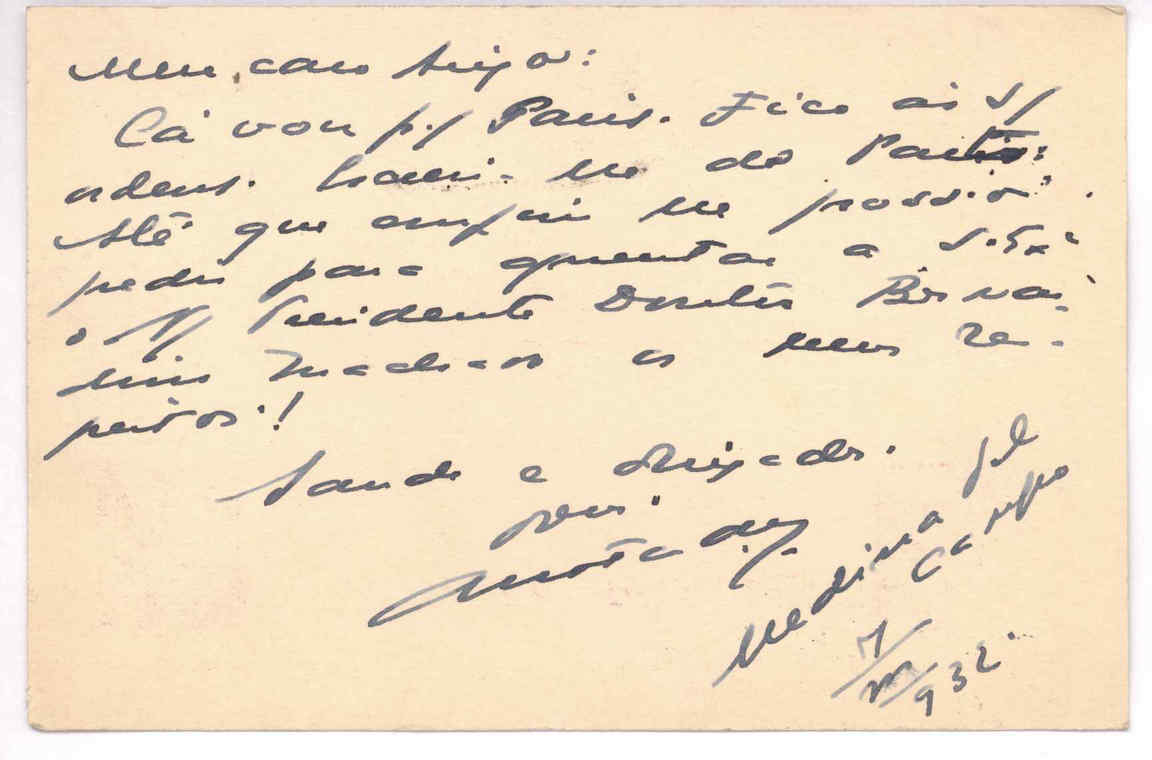 Meu caro Amigo:
Cá vou p.ª/ Paris. Fico ás s/
ordens. Escrevi-me do Porto:
Até que enfim me
pedir para apresentar a S. Exª
o N/ Presidente Doutor Bernar-
dino Machado os meus res-
peitos!
Saude e obrigado.
Medina del
Campo
7/III/932.